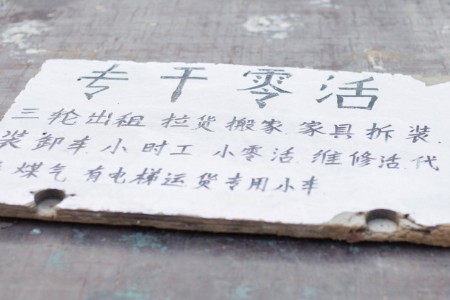 专干零活
三轮出租 拉货 搬家 家具拆装.
装卸车 小时工 小零活. 维修活. 代
煤气 有电梯运货专用小车